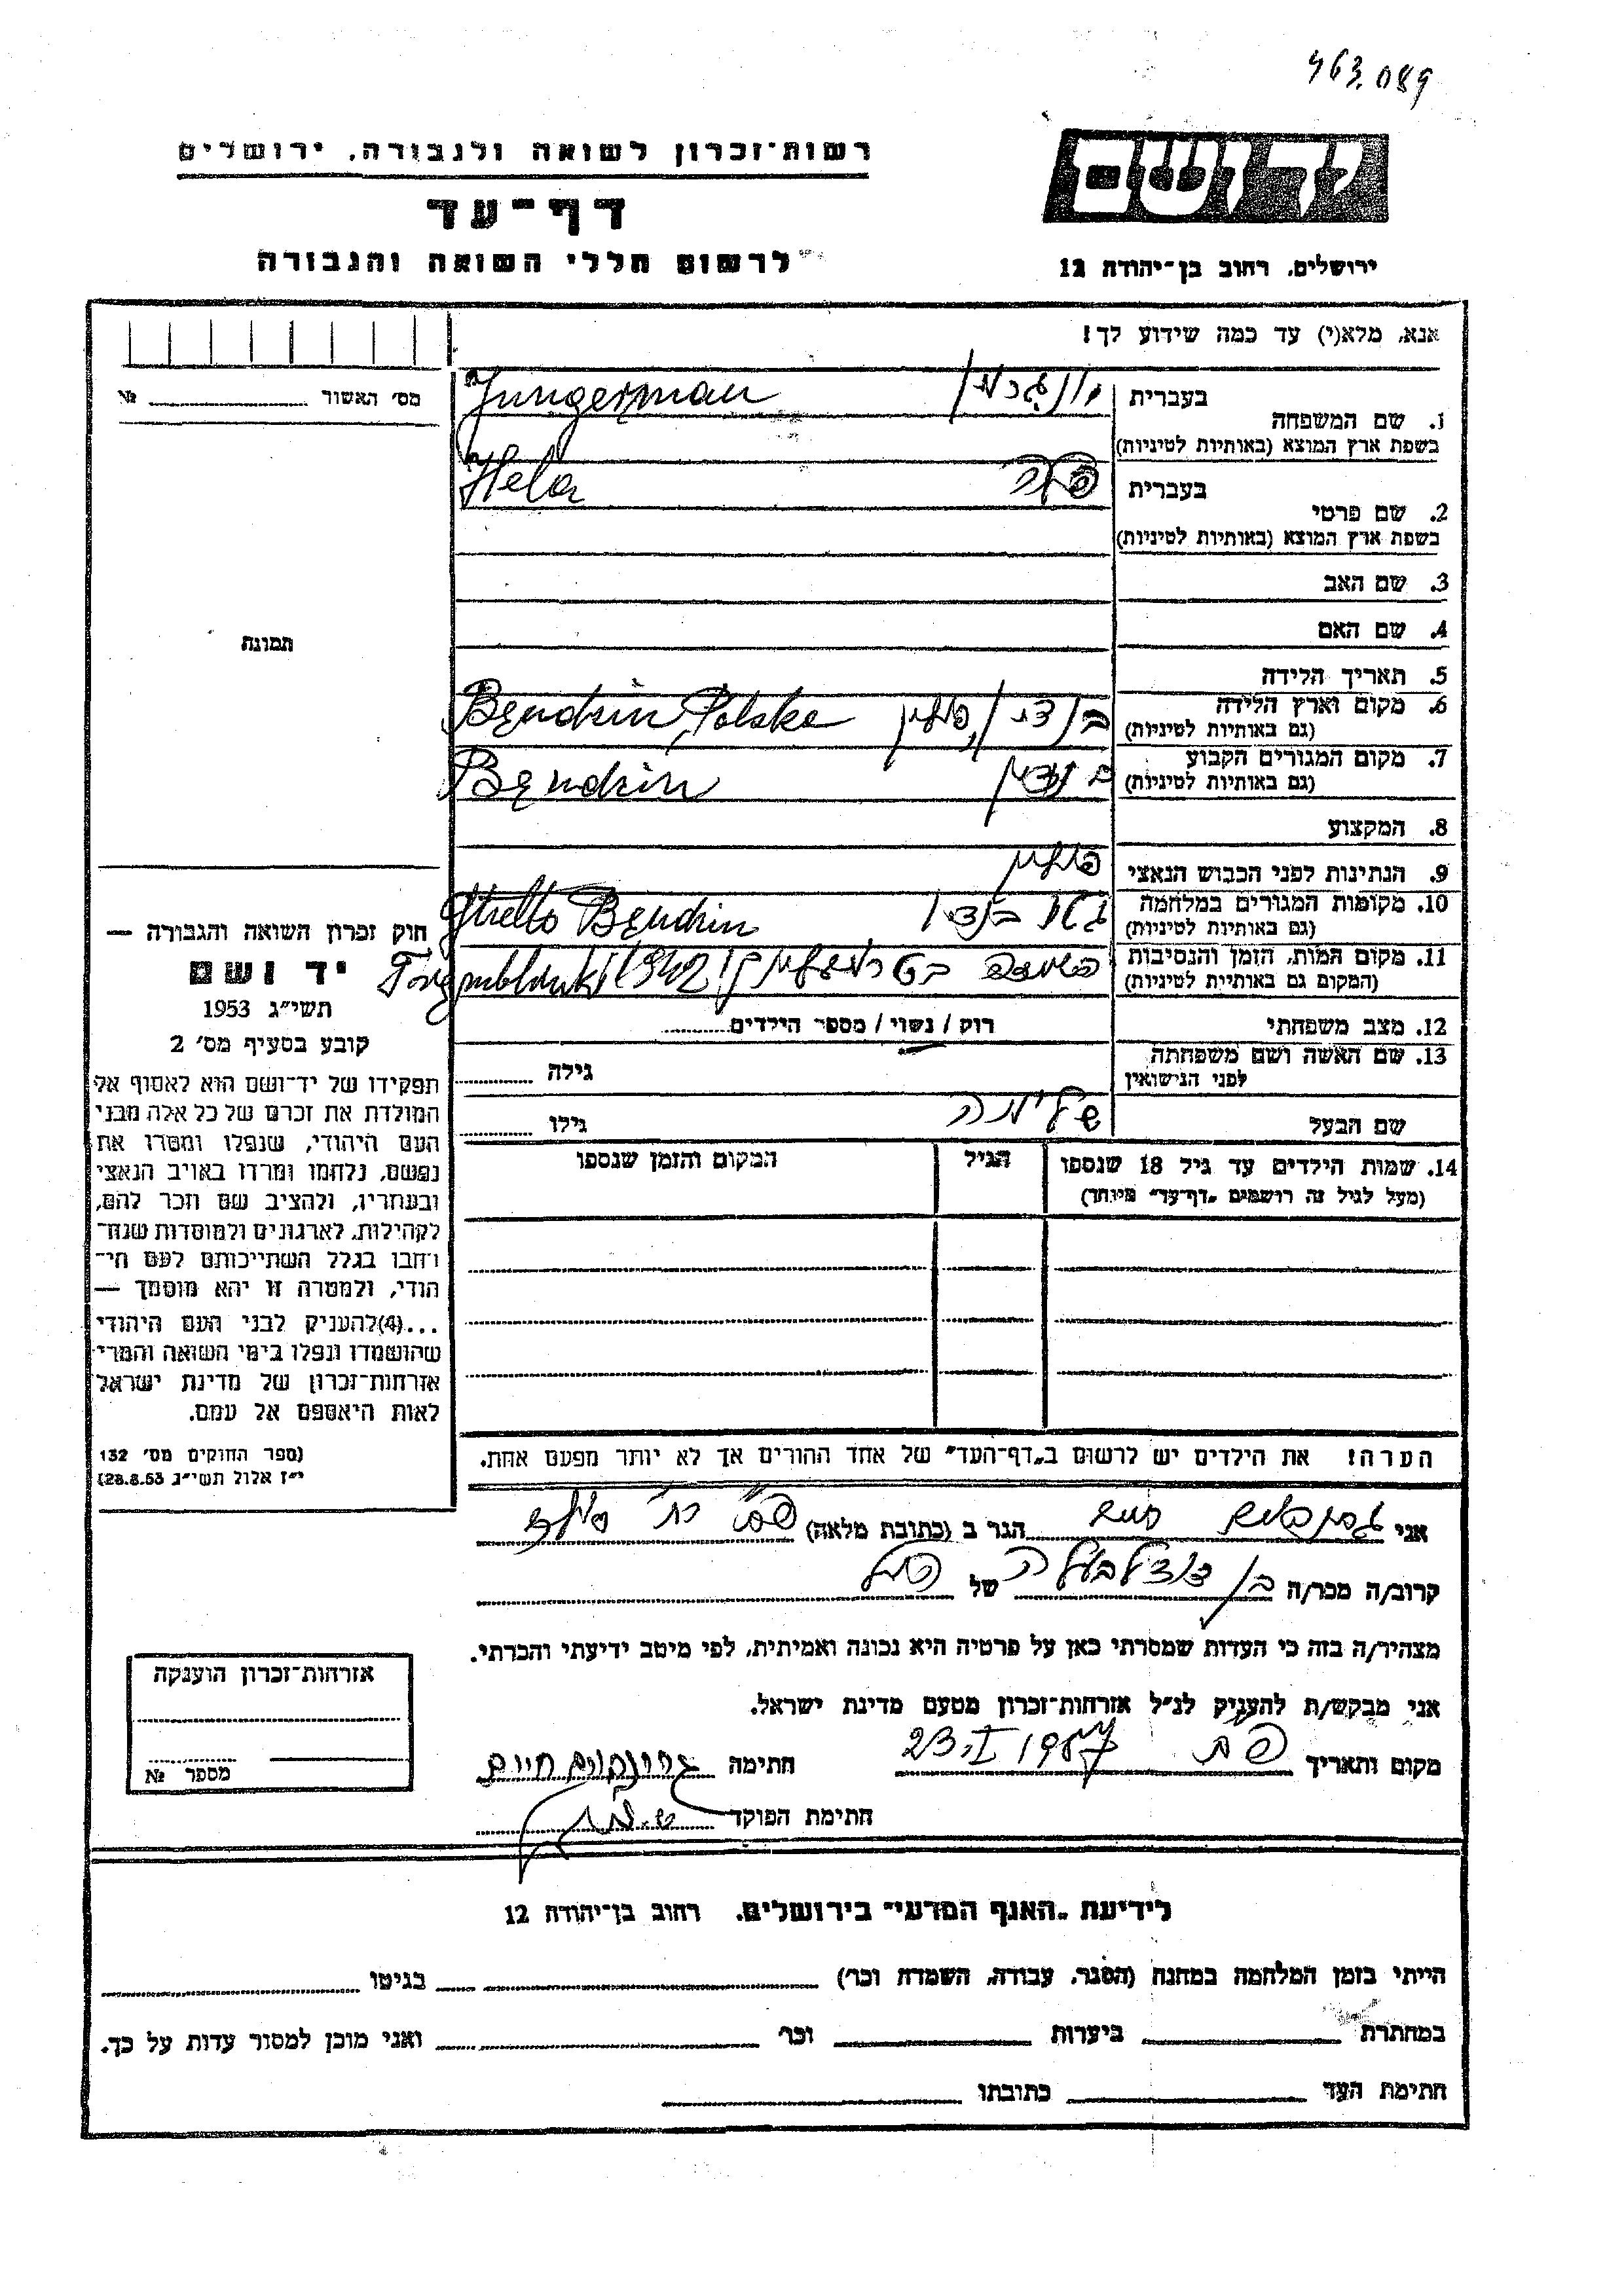 463.089
רשות־זכרון לשואה ולגבורה, ירושלים
דף־עד
לרשום חללי השואה והגבורה
יד ושם
ירושלים, רחוב בן־יהודה 12
אנא, מלא(י) עד כמה שידוע לך!
1. שם המשפחה
בעברית
יונגרמן
Jungerman
בשפת ארץ המוצא (באותיות לטיניות)
2. שם פרטי
בעברית
Hela
בשפת ארץ המוצא (באותיות לטיניות)
3. שם האב
4. שם האם
5. תאריך הלידה
6. מקום וארץ הלידה
(גם באותיות לטיניות)
בנדין, פולין Bendzin, Polske
7. מקום המגורים הקבוע
(גם באותיות לטיניות)
בנדין Bendzin
8. המקצוע
9. הנתינות לפני הכבוש הנאצי
פולין
10. מקומות המגורים במלחמה
(גם באותיות לטיניות)
גטו בנדין Bendzin
11. מקום המות, הזמן והנסיבות
(המקום גם באותיות לטיניות)
1942
12. מצב משפחתי
רווק / נשוי / מספר הילדים
13. שם האשה ושם משפחתה
לפני הנישואין
גילה
שם הבעל
גילו
14. שמות הילדים עד גיל 18 שנספו
(מעל לגיל זה רושמים „דף־עד" מיוחד)
הגיל
המקום והזמן שנספו
הערה! את הילדים יש לרשום ב„דף־העד" של אחד ההורים אך לא יותר מפעם אחת.
מס' האשור № 
תמונה
חוק זכרון השואה והגבורה —
יד ושם
תשי"ג 1953
קובע בסעיף מס' 2
תפקידו של יד־ושם הוא לאסוף אל
המולדת את זכרם של כל אלה מבני
העם היהודי, שנפלו ומסרו את
נפשם, נלחמו ומרדו באויב הנאצי
ובעוזריו, ולהציב שם וזכר להם,
לקהילות, לארגונים ולמוסדות שנח־
רבו בגלל השתייכותם לעם הי־
הודי, ולמטרה זו יהא מוסמך —
...(4)להעניק לבני העם היהודי
שהושמדו ונפלו בימי השואה והמרי
אזרחות־זכרון של מדינת ישראל
לאות היאספם אל עמם.
(ספר החוקים מס' 132
י"ז אלול תשי"ג 28.8.53)
אני חיים הגר ב (כתובת מלאה)
קרוב/ה מכר/ה בן של
מצהיר/ה בזה כי העדות שמסרתי כאן על פרטיה היא נכונה ואמיתית, לפי מיטב ידיעתי והכרתי.
אני מבקש/ת להעניק לנ"ל אזרחות־זכרון מטעם מדינת ישראל.
מקום ותאריך 23.I.1957 חתימה חיים
חתימת הפוקד
אזרחות־זכרון הוענקה
מספר №
לידיעת „האגף המדעי" בירושלים, רחוב בן־יהודה 12
הייתי בזמן המלחמה במחנה (הסגר, עבודה, השמדה וכו') בגיטו
במחתרת ביערות וכו' ואני מוכן למסור עדות על כך.
חתימת העד כתובתו